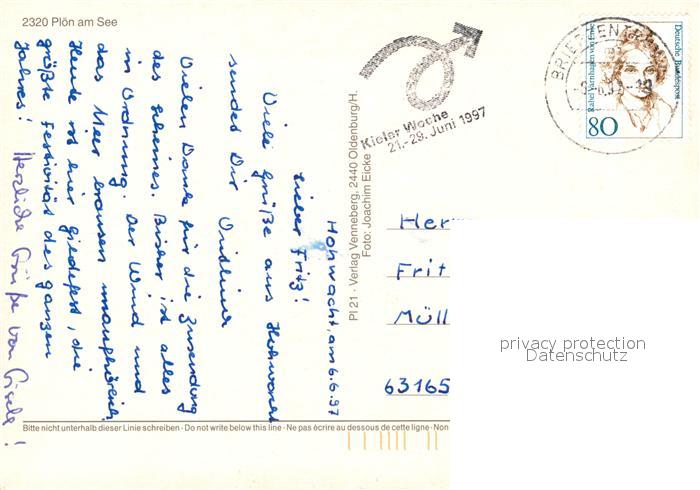 2320 Plön am See
Hohwacht, am 6.6.97
Lieber Fritz!
Viele Grüße aus Hohwacht
sendet Dir
Vielen Dank für die Zusendung
des Scheines. Bisher ist alles
in Ordnung. Der Wind und
das Meer brausen unaufhörlich.
Heute ist hier Gildefest, die
größte Festivität des ganzen
Jahres!
Herzliche Grüße von Gisela!
Pl 21 · Verlag Venneberg, 2440 Oldenburg/H.
Foto: Joachim Eicke
Kieler Woche
21.-29. Juni 1997
BRIEFZENTRUM
Deutsche Bundespost
Rahel Varnhagen von Ense
80
Her
Frit
Müll
63165
privacy protection
Datenschutz
Bitte nicht unterhalb dieser Linie schreiben · Do not write below this line · Ne pas écrire au dessous de cette ligne · Non